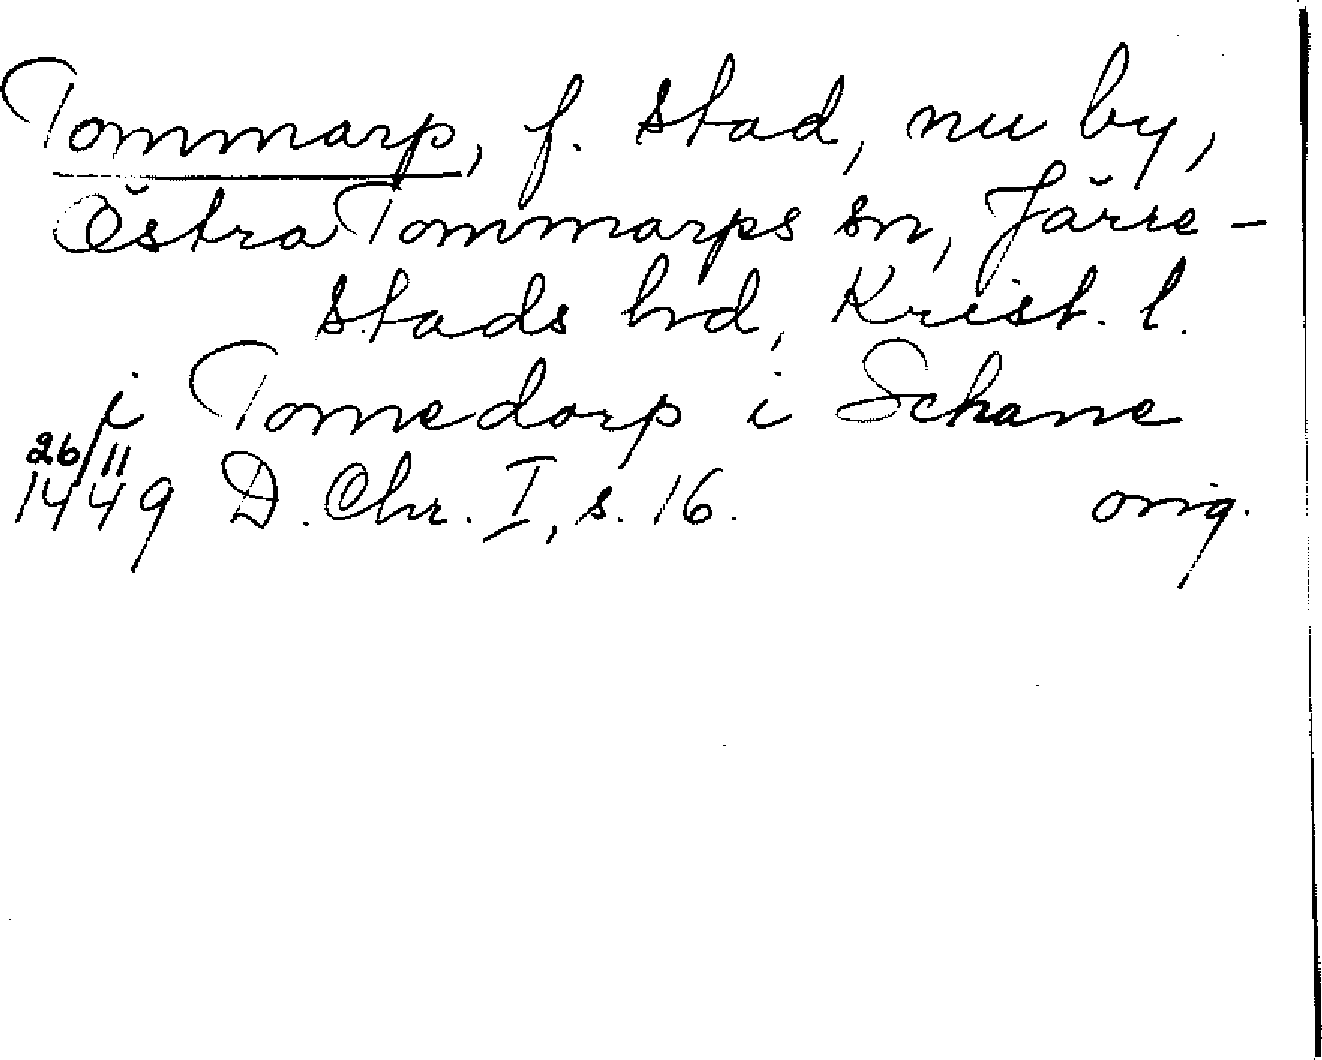 Tommarp, f. stad, nu by,
Östra Tommarps sn, Järre-
stads hd, Krist. l.
i Tomedorp i Schane
26/11
1449 D. Chr. I, s. 16. orig.